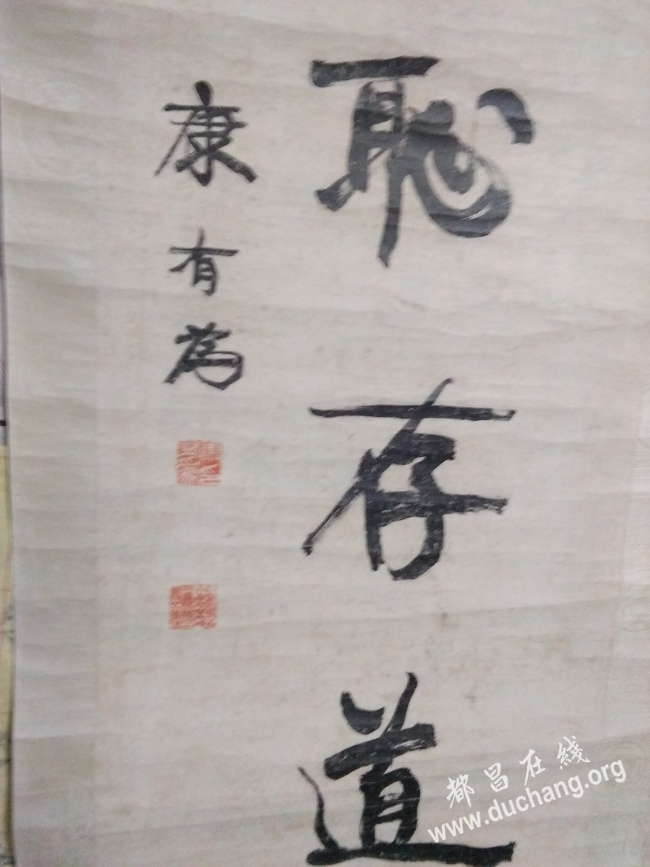 恥存道
康有為
都昌在线
www.duchang.org